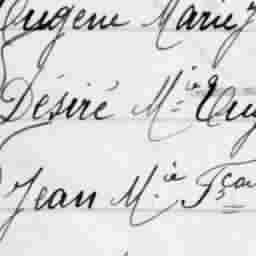 Eugène Marie J
Désiré M.ie Eug
Jean M.ie Fçois